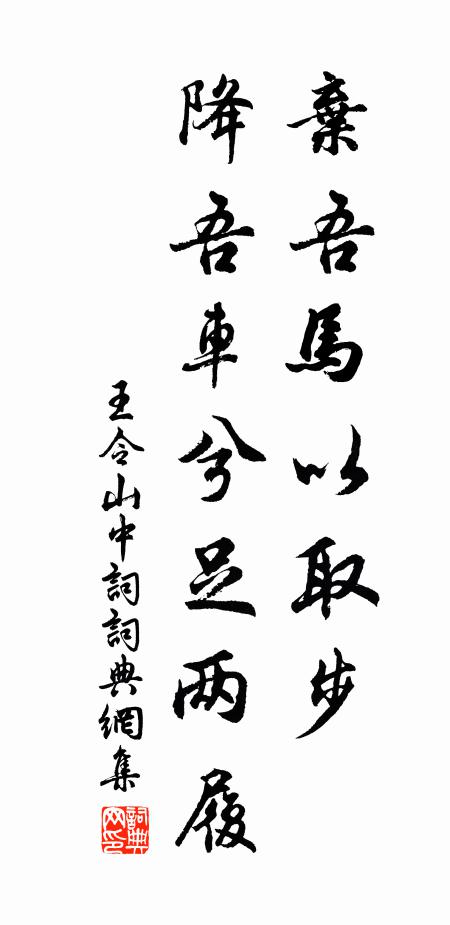 棄吾馬以取步
降吾車兮足两履
王令山中詞詞典網集
詞典网印